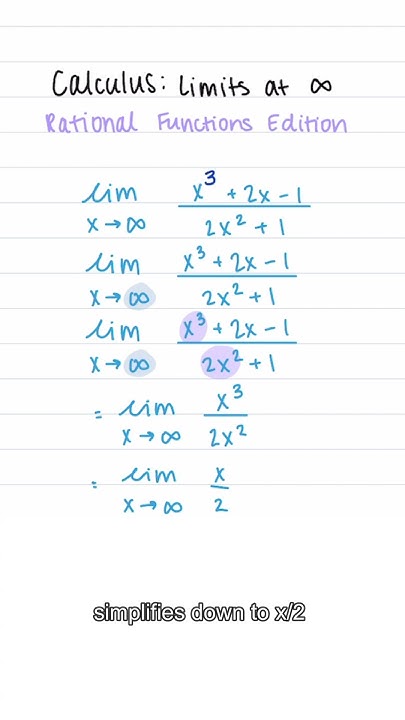 Calculus: Limits at ∞
Rational Functions Edition
lim x→∞ (x³ + 2x - 1)/(2x² + 1)
lim x→∞ (x³ + 2x - 1)/(2x² + 1)
lim x→∞ (x³ + 2x - 1)/(2x² + 1)
= lim x→∞ x³/2x²
= lim x→∞ x/2
simplifies down to x/2